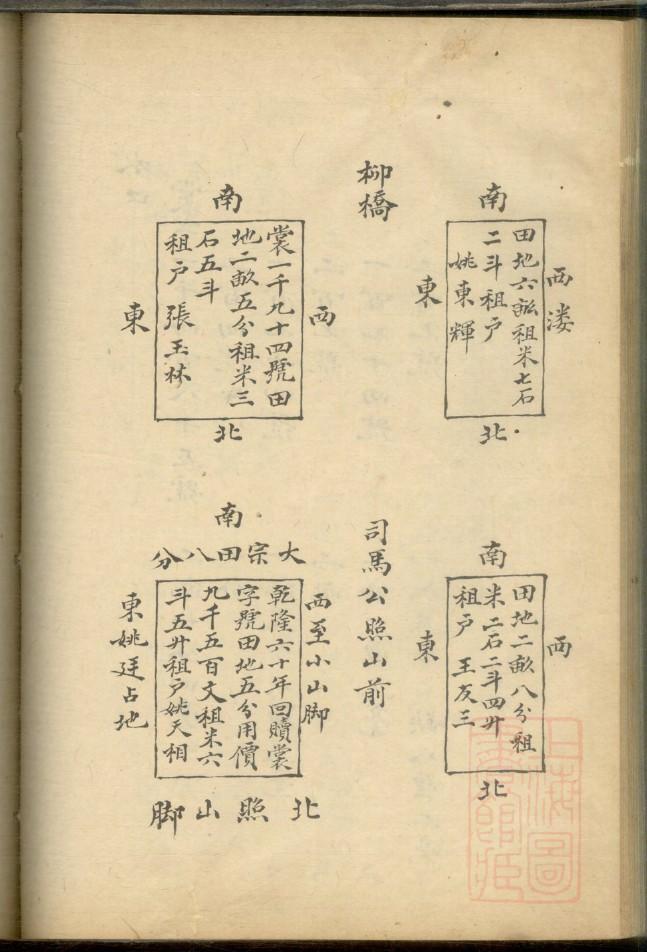 南
西漊
田地六畝祖米七石
二斗租戶
姚東輝
東
北
南
西
田地二畝八分租
米二石二斗四升
租戶 王友三
東
北
柳橋
南
西
裳一千九十四號田
地二畝五分租米三
石五斗
租戶 張玉林
東
北
司馬公照山前
南
大宗田八分
西至小山脚
乾隆六十年回贖裳
字號田地五分用價
九千五百文租米六
斗五升租戶姚天相
東姚廷占地
北照山脚
上海圖
書館藏